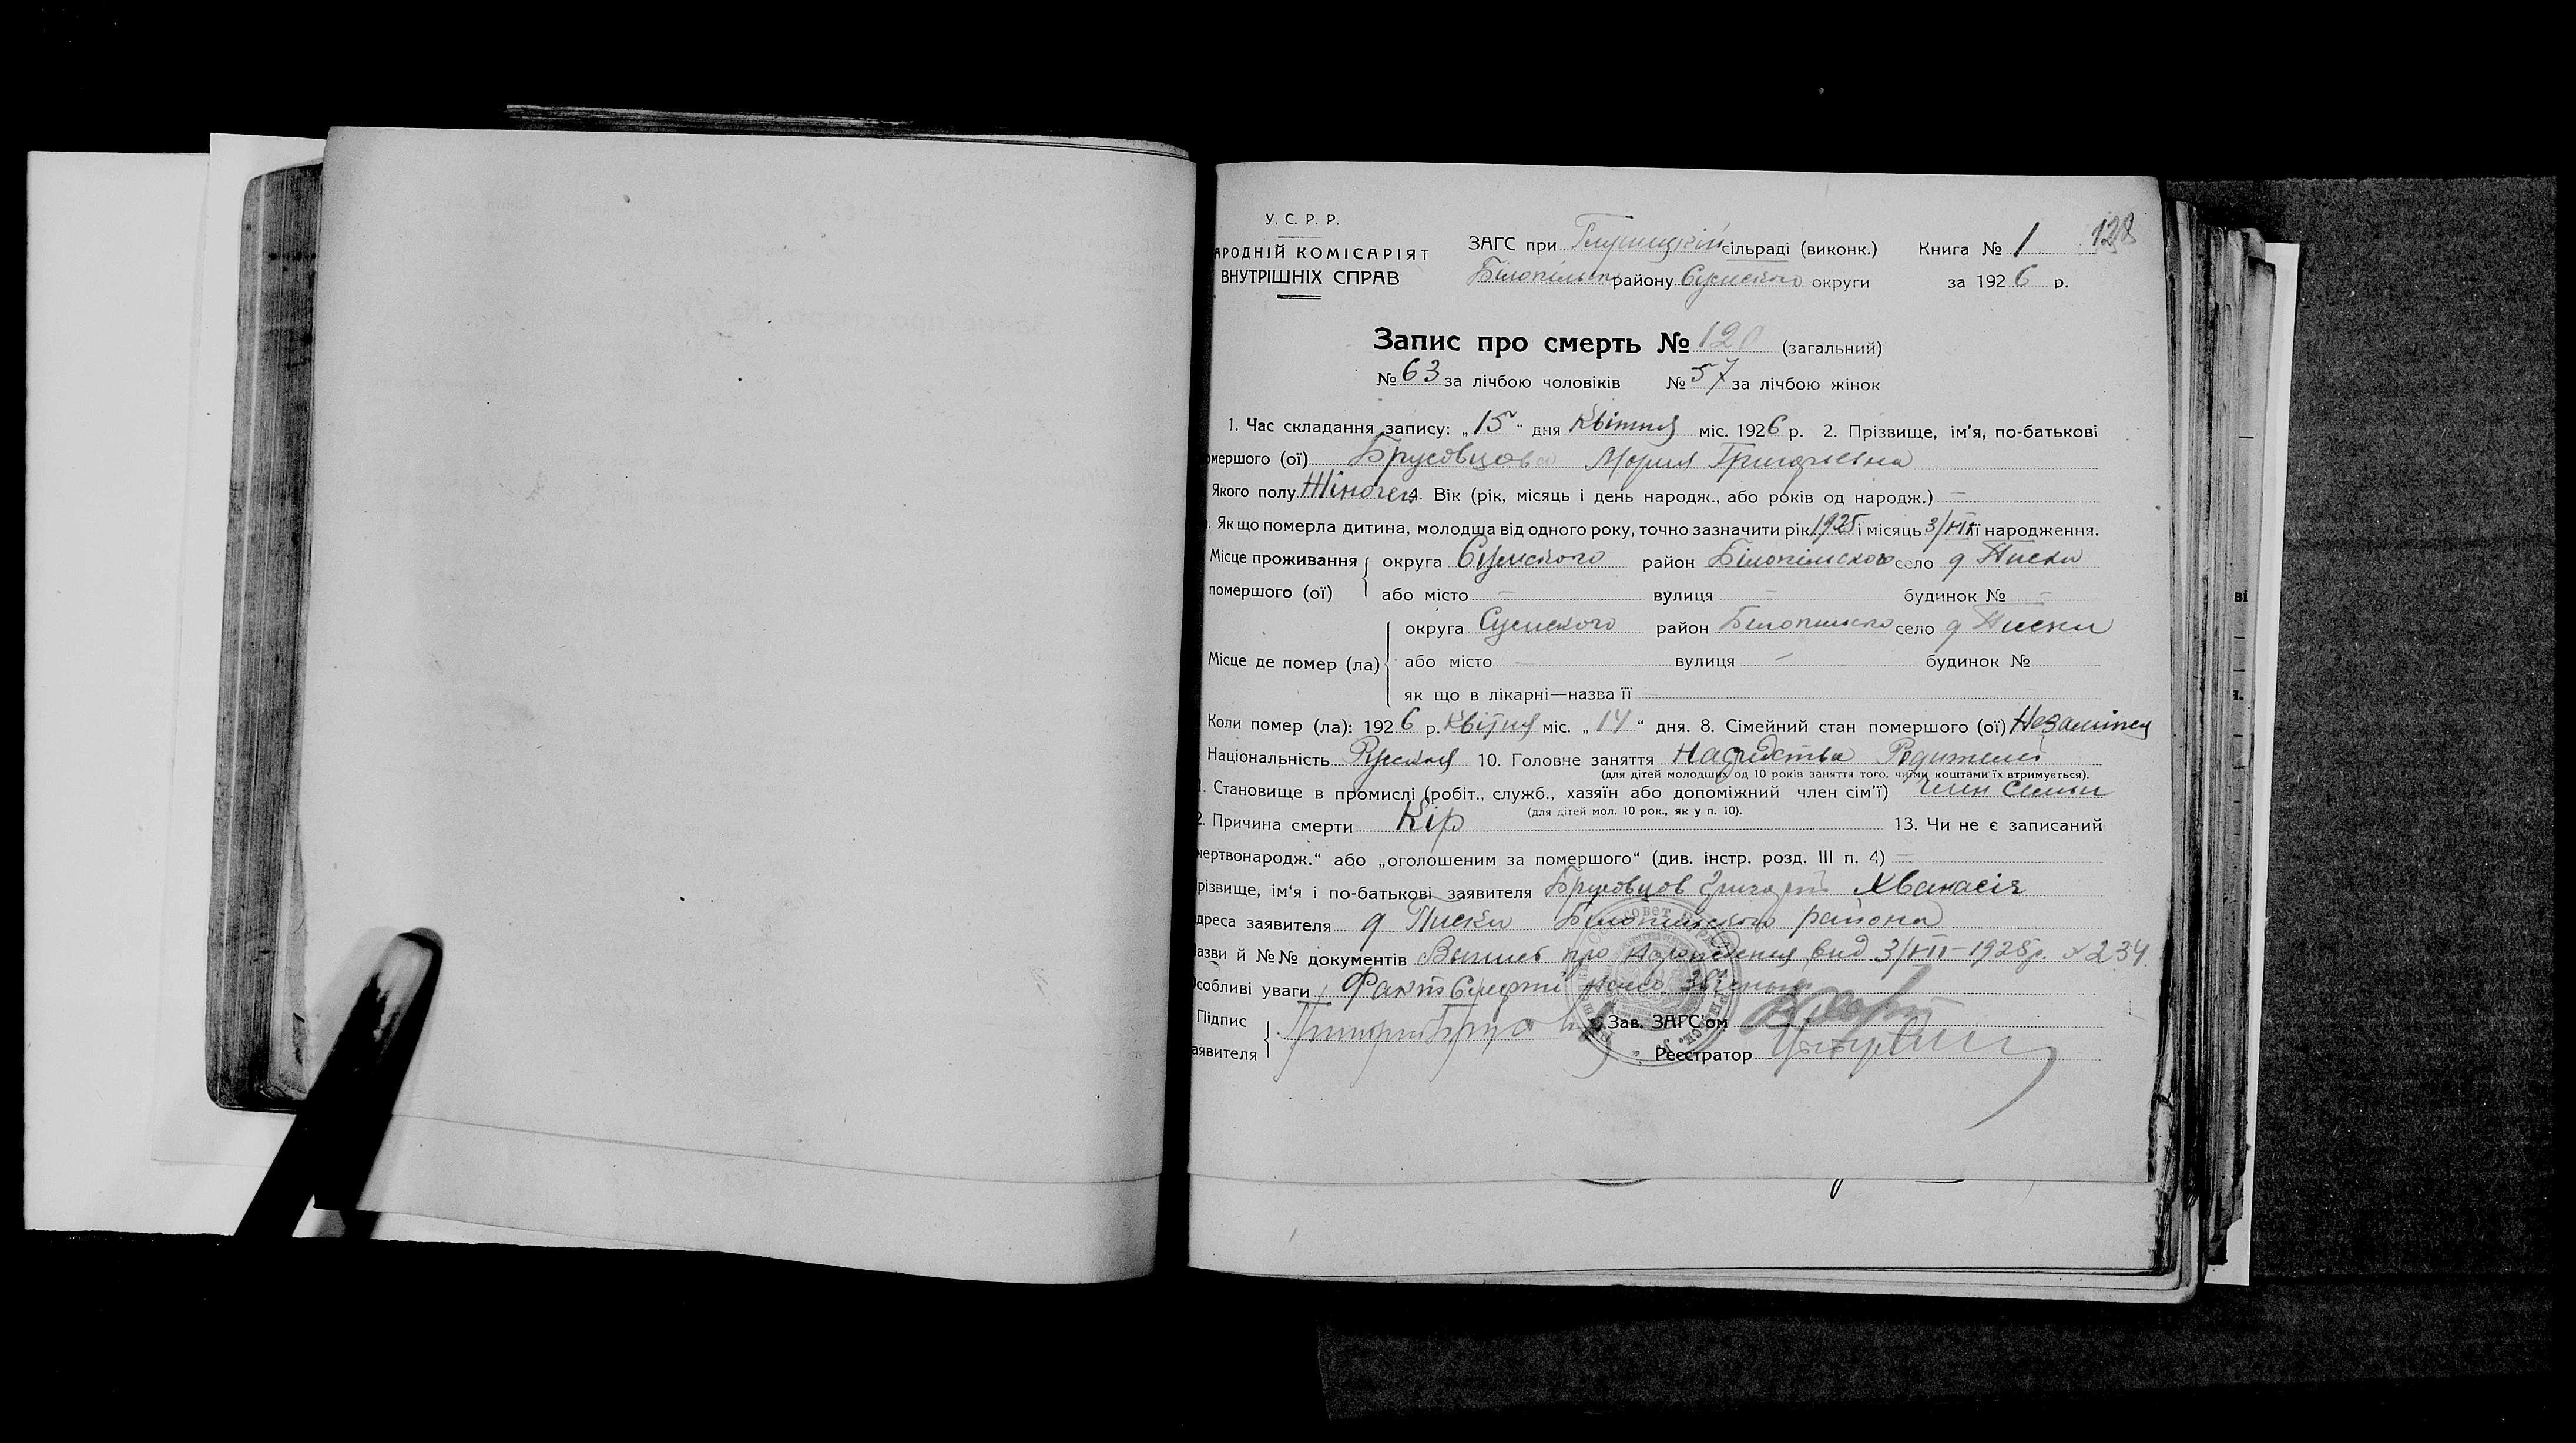 У. С. Р. Р.
АРОДНІЙ КОМІСАРІЯТ
ВНУТРІШНІХ СПРАВ
ЗАГС при сільраді (виконк.) Книга № 1 128
району Сумского округи за 1926 р.
Запис про смерть № 120 (загальний)
№ 63 за лічбою чоловіків № 57 за лічбою жінок
1. Час складання запису: „15“ дня Квітня міс. 1926 р. 2. Прізвище, ім'я, по-батькові
омершого (ої) Брусовцова Мария Григорьевна
Якого полу 4. Вік (рік, місяць і день народж., або років од народж.) —
. Як що померла дитина, молодша від одного року, точно зазначити рік 1925 і місяць її народження.
Місце проживання округа Сумского район Білопільского село д Писки
помершого (ої) або місто — вулиця — будинок № —
округа Сумского район село д Писки
Місце де помер (ла) або місто — вулиця — будинок №
як що в лікарні—назва її
Коли помер (ла): 1926 р. Квітня міс. „14“ дня. 8. Сімейний стан помершого (ої)
Національність Русская 10. Головне заняття Родителей
(для дітей молодших од 10 років заняття того, чиїми коштами їх втримується).
1. Становище в промислі (робіт., служб., хазяїн або допоміжний член сім'ї) член семьи
(для дітей мол. 10 рок., як у п. 10).
2. Причина смерти Кір 13. Чи не є записаний
мертвонародж.“ або „оголошеним за помершого“ (див. інстр. розд. III п. 4) —
різвище, ім'я і по-батькові заявителя Брусовцов Григорій
дреса заявителя д Писки Білопільского района
азви й №№ документів про 1925р. 234.
собливі уваги Факт Смерті
Підпис Зав. ЗАГС'ом
аявителя Реєстратор
ві